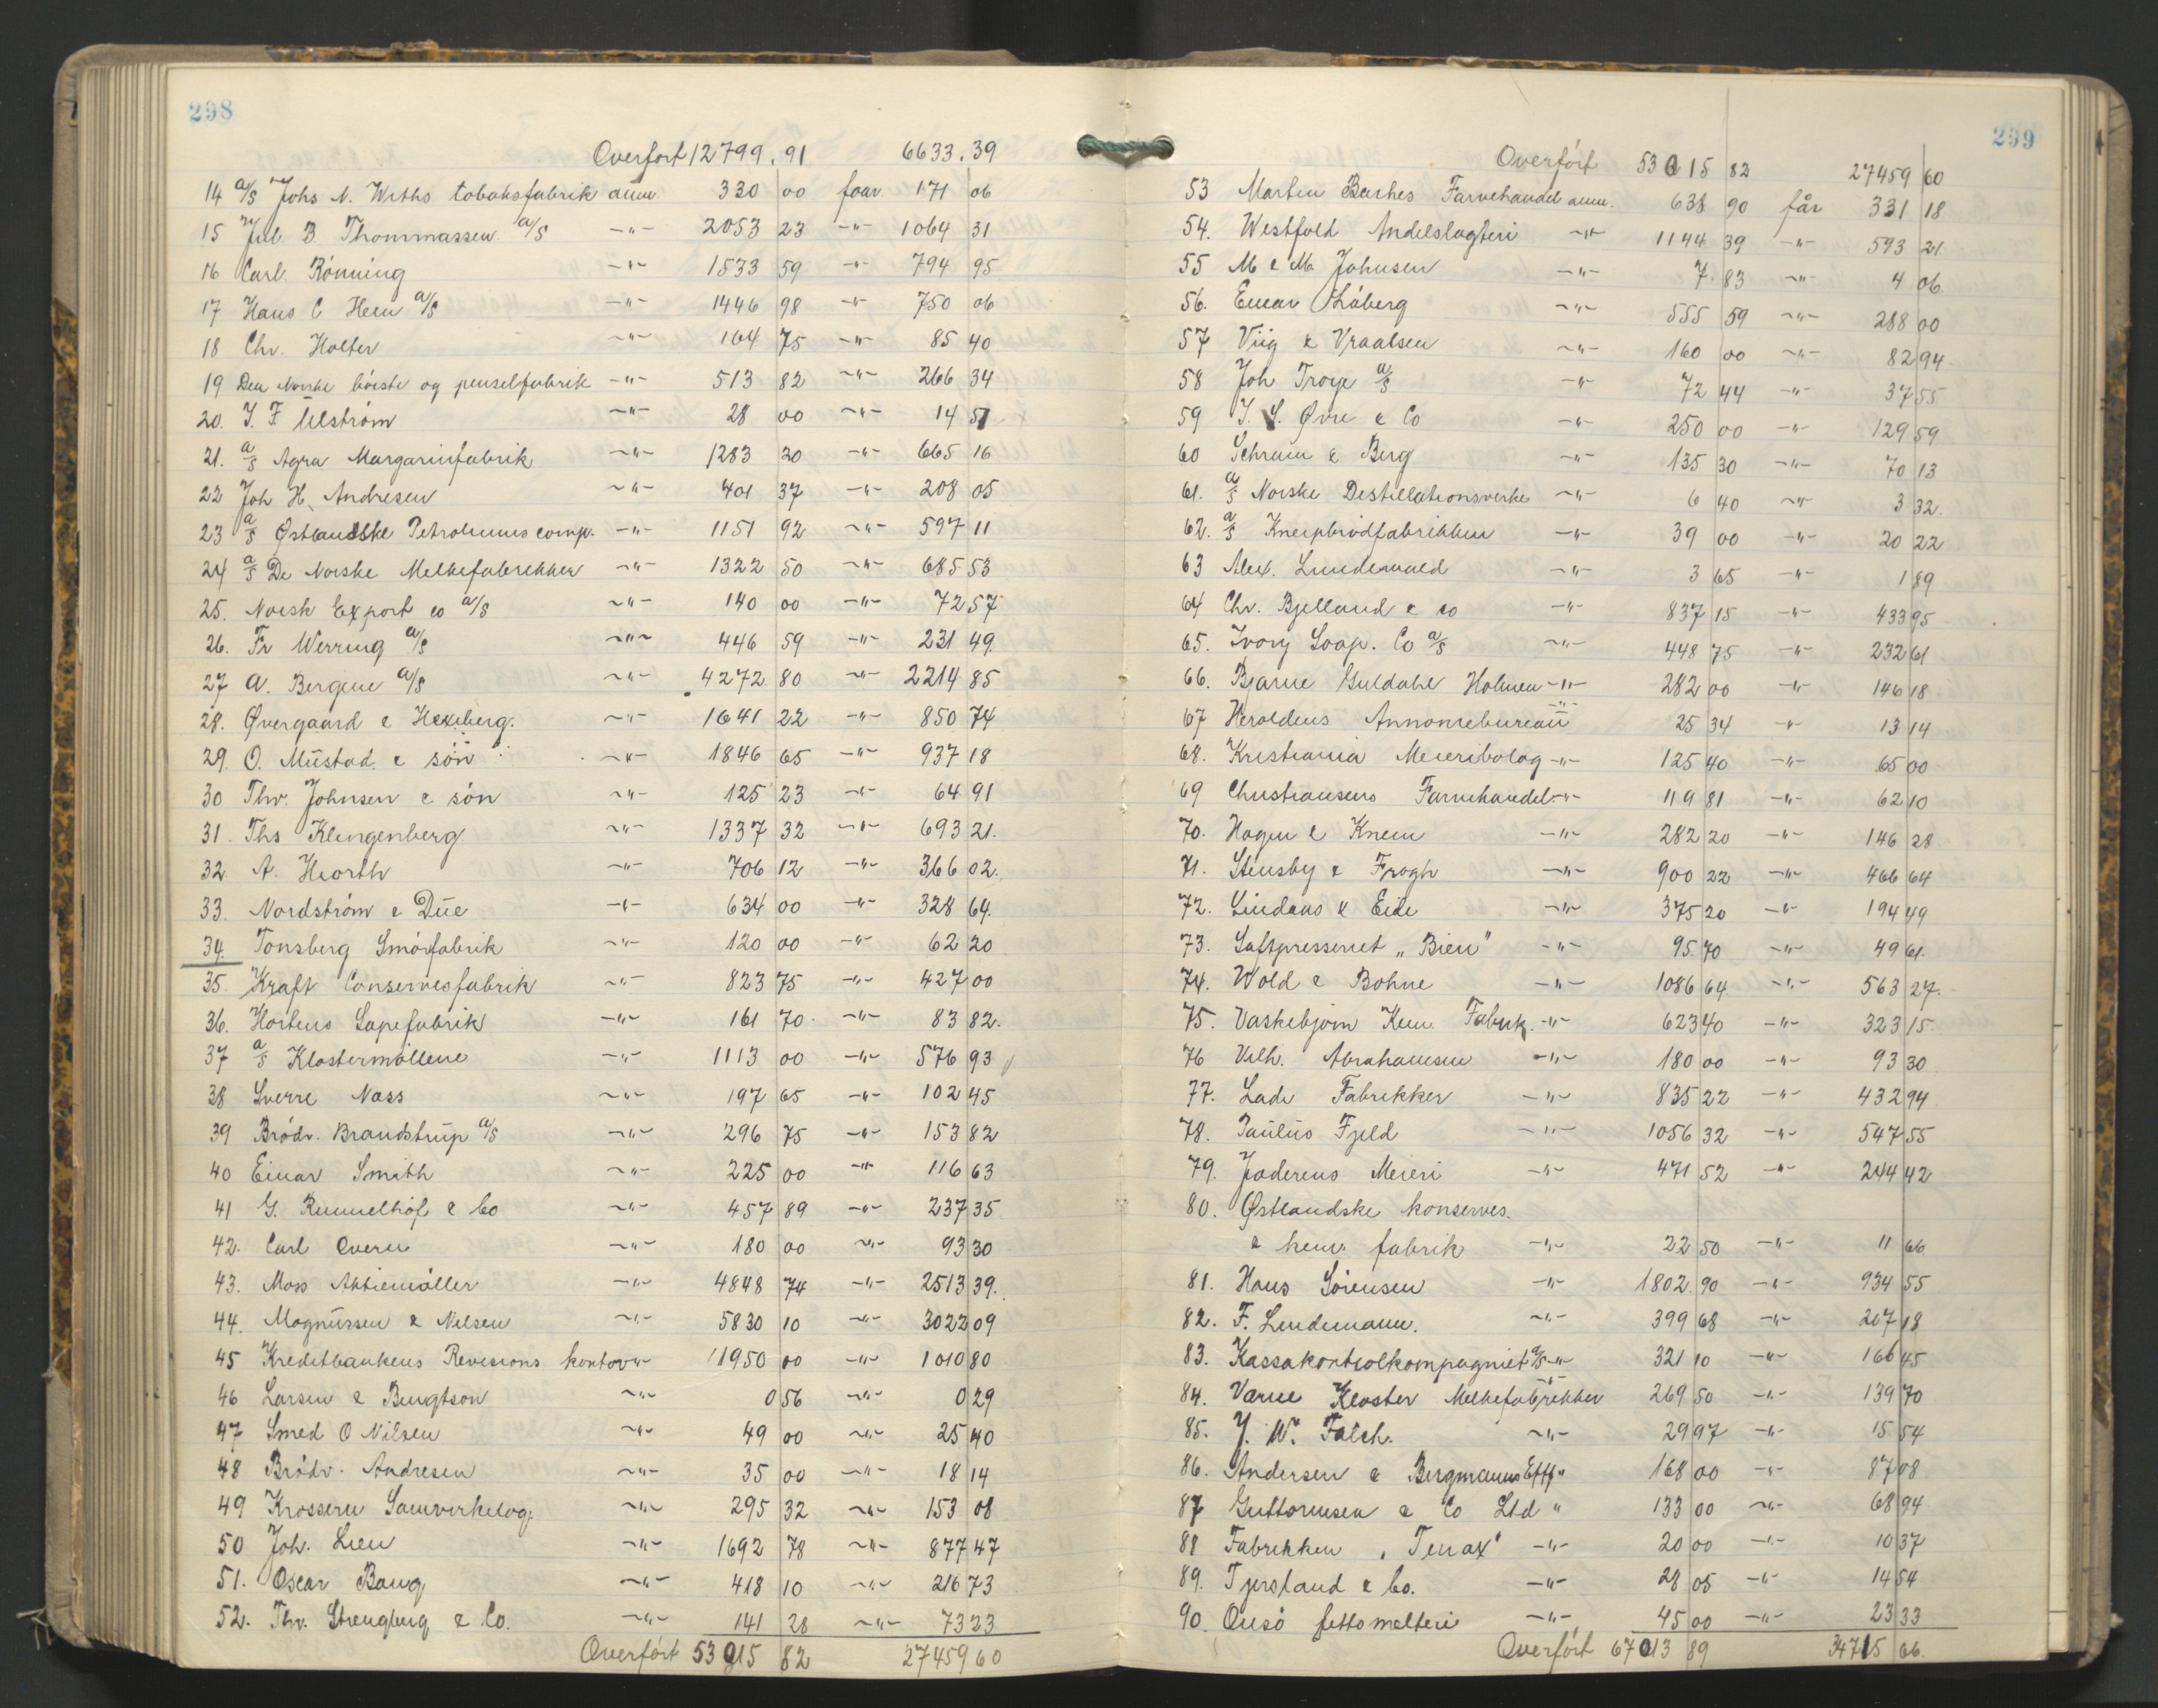 298
Overført 12799.91 6633.39
14 a/s Johs N. Withs tobaksfabrik anm. 330 00 faar 171 06
15 Jul. B. Thommassen a/s -"- 2053 23 -"- 1064 31
16 Carl Rönning -"- 1533 59 -"- 794 95
17 Hans C Hem a/s -"- 1446 98 -"- 750 06
18 Chr. Holter -"- 164 75 -"- 85 40
19 Den Norske börste og penselfabrik -"- 513 82 -"- 266 34
20. J. F. Ulström -"- 28 00 -"- 14 51
21. a/s Agra Margarinfabrik -"- 1283 20 -"- 665 16
22 Joh H. Andresen -"- 401 37 -"- 208 05
23 a/s Østlandske Petroleums comp. -"- 1151 92 -"- 597 11
24 a/s De Norske Melkefabrikker -"- 1322 50 -"- 685 53
25. Norsk Export co a/s -"- 140 00 -"- 72 57
26. Fr Werring a/s -"- 446 59 -"- 231 49
27 A. Bergene a/s -"- 4272 80 -"- 2214 85
28. Øvergaard & Hexeberg. -"- 1641 22 -"- 850 74
29. O. Müstad & sön -"- 1846 65 -"- 937 18
30 Thv. Johnsen & sön -"- 125 23 -"- 64 91
31. Ths Klingenberg. -"- 1337 32 -"- 693 21.
32. A. Hiorth -"- 706 12 -"- 366 02.
33. Nordström & Düe -"- 634 00 -"- 328 64.
34. Tonsberg Smörfabrik -"- 120 00 -"- 62 20
35. Kraft Conservesfabrik -"- 823 75 -"- 427 00
36. Hortens Sapefabrik -"- 161 70 -"- 83 82.
37 a/s Klostermöllene -"- 1113 00 -"- 576 93
38 Sverre Nass -"- 197 65 -"- 102 45
39 Brödr. Brandstrüp a/s -"- 296 75 -"- 153 82
40 Einar Smith -"- 225 00 -"- 116 63
41 G. Rummelhof & Co -"- 457 89 -"- 237 35
42. Carl Evern -"- 180 00 -"- 93 30
43. Moss Aktiemöller -"- 4848 74 -"- 2513 39.
44. Magnüssen & Nilsen -"- 5830 10 -"- 3022 09
45 Kreditbankens Revisions kontor -"- 1950 00 -"- 1010 80
46 Larsen & Bengtson -"- 0 56 -"- 0 29
47 Smed O Nilsen -"- 49 00 -"- 25 40
48 Brödr. Andresen -"- 35 00 -"- 18 14
49 Krosseren Samvirkelag. -"- 295 32 -"- 153 08
50 Joh. Lien -"- 1692 78 -"- 877 47
51. Oscar Baug -"- 418 10 -"- 216 73
52. Thv. Strengberg & Co. -"- 141 28 -"- 73 23
Overført 53015 82 27459 60
299
Overført 53015 82 27459 60
53 Martin Barkes Farvehandel anm. 638 90 får 331 18
54. Westfold Andelslagteri -"- 1144 39 -"- 593 21
55 M & M Johnsen -"- 7 83 -"- 4 06
56. Einar Låberg -"- 555 59 -"- 288 00
57 Viig & Vraalsen -"- 160 00 -"- 82 94
58 Joh Troye a/s -"- 72 44 -"- 37 55
59 J. S. Øvre & Co -"- 250 00 -"- 129 59
60 Schrum & Berg -"- 135 30 -"- 70 13
61. a/s Norske Destillationsverke -"- 6 40 -"- 3 32.
62. a/s Kneipbrödfabrikken -"- 39 00 -"- 20 22
63 Alex. Lundewald -"- 3 65 -"- 1 89
64 Chr. Bjelland & co -"- 837 15 -"- 433 95
65. Ivory Soap. Co a/s -"- 448 75 -"- 232 61
66. Bjarne Guldahl Holmen -"- 282 00 -"- 146 18
67 Heroldens Annoncebureaü -"- 25 34 -"- 13 14
68. Kristiania Meieribolag -"- 125 40 -"- 65 00
69 Christiansens Farvehandel -"- 119 81 -"- 62 10
70. Hagen & Knem -"- 282 20 -"- 146 28
71. Stensby & Frogh -"- 900 22 -"- 466 64
72. Lindaas & Eide -"- 375 20 -"- 194 49
73. Saftpresseriet "Bien" -"- 95 70 -"- 49 61.
74. Wold & Bohne -"- 1086 64 -"- 563 27.
75. Vaskebjørn Kem. Fabrik. -"- 623 40 -"- 323 15
76 Vilh. Abrahamsen -"- 180 00 -"- 93 30
77. Lade Fabrikker -"- 835 22 -"- 432 94
78. Paülüs Fjeld -"- 1056 32 -"- 547 55
79. Jaderens Meieri -"- 471 52 -"- 244 42
80. Østlandske konserves.
& kem. fabrik -"- 22 50 -"- 11 66
81. Hans Sörensen -"- 1802.90 -"- 934 55
82. F. Lindemann. -"- 399 68 -"- 207 18
83. Kassakontrolkompagniet a/s -"- 321 10 -"- 166 45
84. Varne Kloster Melkefabrikker -"- 269 50 -"- 139 70
85. Y. W. Falch. -"- 29 97 -"- 15 54
86. Andersen & Bergmanns Eftf " 168 00 -"- 87 08
87 Guttormsen & Co Ltd " 133 00 -"- 68 94
88 Fabrikken "Tenax" -"- 20 00 -"- 10 37
89. Tjersland & Co. -"- 28 05 -"- 14 54
90. Onsö fettsmelteri -"- 45 00 -"- 23 33
Overført 67013 89 34715 66.